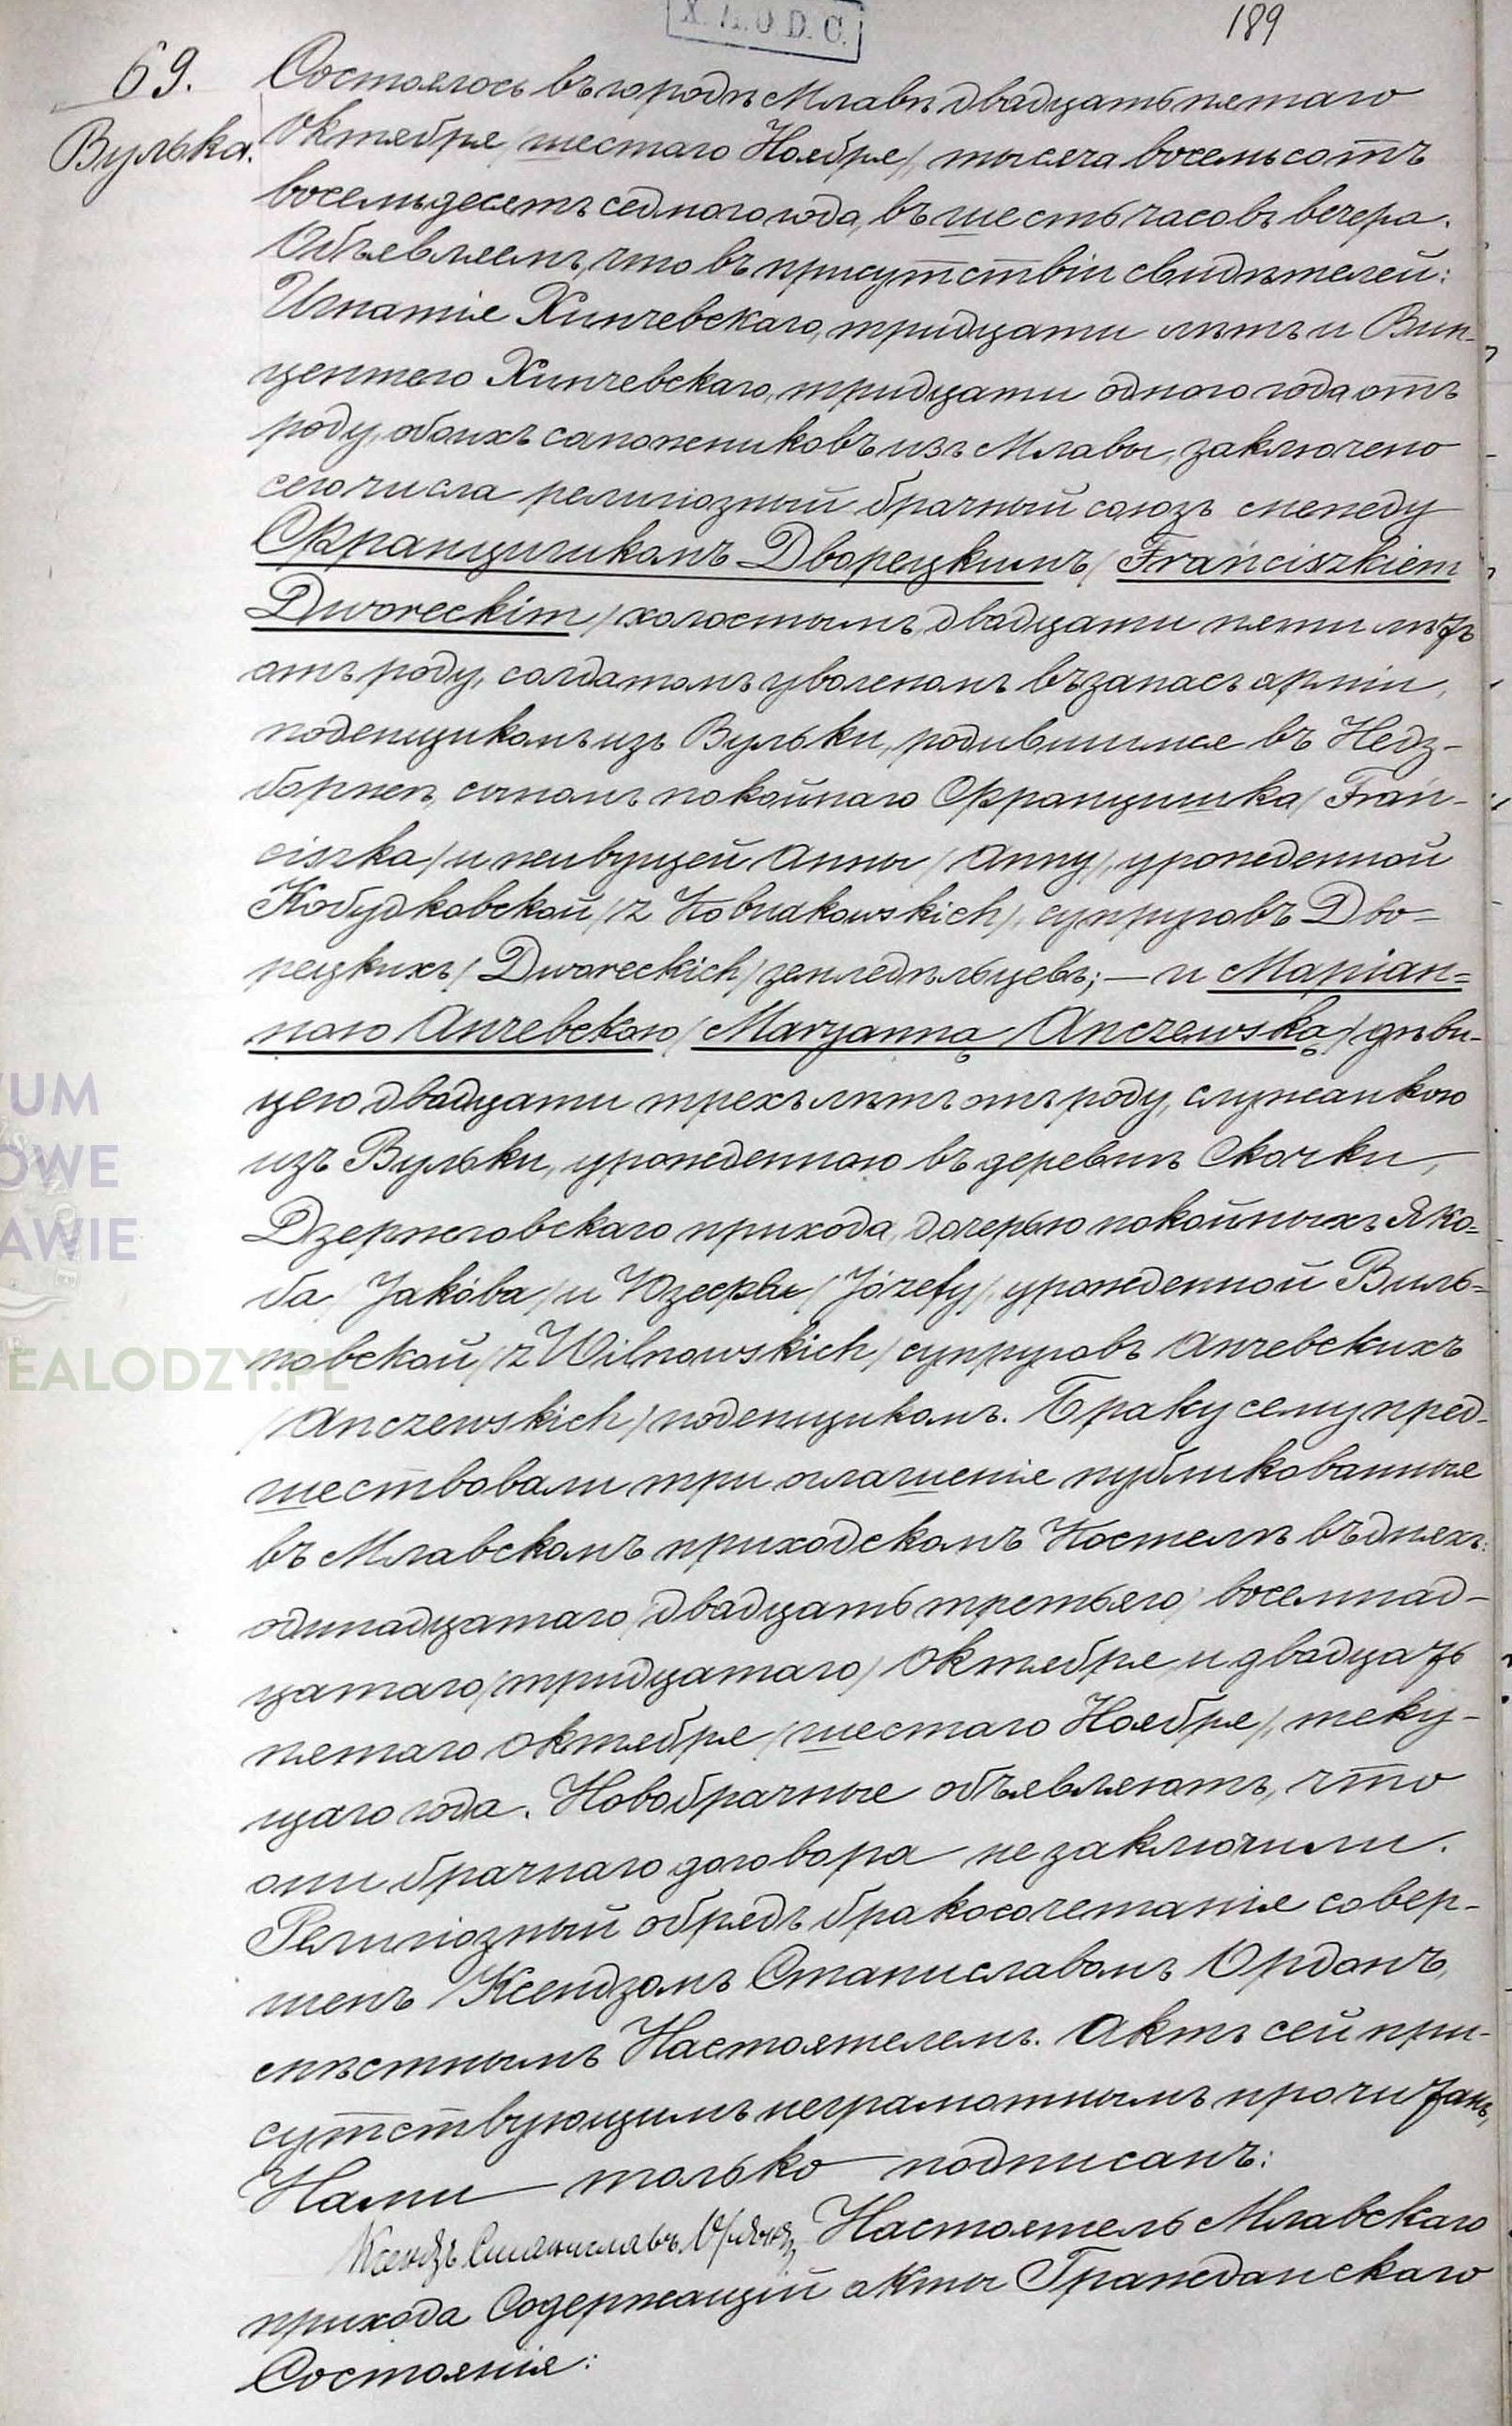 X. A. O. D. C.
189
69.
Вулька.
Состоялось въ городѣ Млавѣ двадцать пятаго
Октября /шестаго Ноября/, тысяча восемьсотъ
восемьдесятъ седмого года, въ шесть часовъ вечера.
Объявляемъ, что въ присутствіи свидѣтелей:
Игнатія Хинчевскаго, тридцати лѣтъ и Вин-
центего Хинчевскаго, тридцати одного года отъ
роду, обоихъ сапожниковъ изъ Млавы, заключено
сего числа религіозный брачный союзъ между
Францишкомъ Дворецкимъ /Franciszkiem
Dworeckim/ холостымъ, двадцати пяти лѣтъ
отъ роду, солдатомъ уволеномъ въ запасъ арміи,
поденщикомъ изъ Вульки, родившимся въ Недз-
боржѣ, сыномъ покойнаго Францишка /Fran-
ciszka/ и живущей Анны /Anny/, урожденной
Кобудковской /z Kobudkowskich/, супруговъ Дво-
рецкихъ /Dworeckich/ земледѣльцевъ; — и Маріан-
ною Анчевскою /Maryanną Anczewską/ дѣви-
цею двадцати трехъ лѣтъ отъ роду, служанкою
изъ Вульки, урожденною въ деревнѣ Скочки,
Дзержговскаго прихода, дочерью покойныхъ Яко-
ба /Jakóba/ и Юзефы /Józefy/, урожденной Виль-
новской /z Wilnowskich/ супруговъ Анчевскихъ
/Anczewskich/ поденщикомъ. Браку сему пред-
шествовали три оглашенія публикованныя
въ Млавскомъ приходскомъ Костелѣ въ дняхъ:
одинадцатаго /двадцать третьяго/ восемнад-
цатаго /тридцатаго/ Октября и двадцать
пятаго Октября /шестаго Ноября/, теку-
щаго года. Новобрачные объявляютъ, что
они брачнаго договора не заключили.
Религіозный обрядъ бракосочетанія совер-
шенъ Ксендзомъ Станиславомъ Ордонъ,
смѣстнымъ Настоятелемъ. Актъ сей при-
сутствующимъ неграмотнымъ прочитанъ,
Нами только подписанъ:
Ксендзъ Станиславъ Ордонъ, Настоятель Млавскаго
прихода Содержащій акты Гражданскаго
Состоянія:
UM
OWE
AWIE
EALODZY.PL